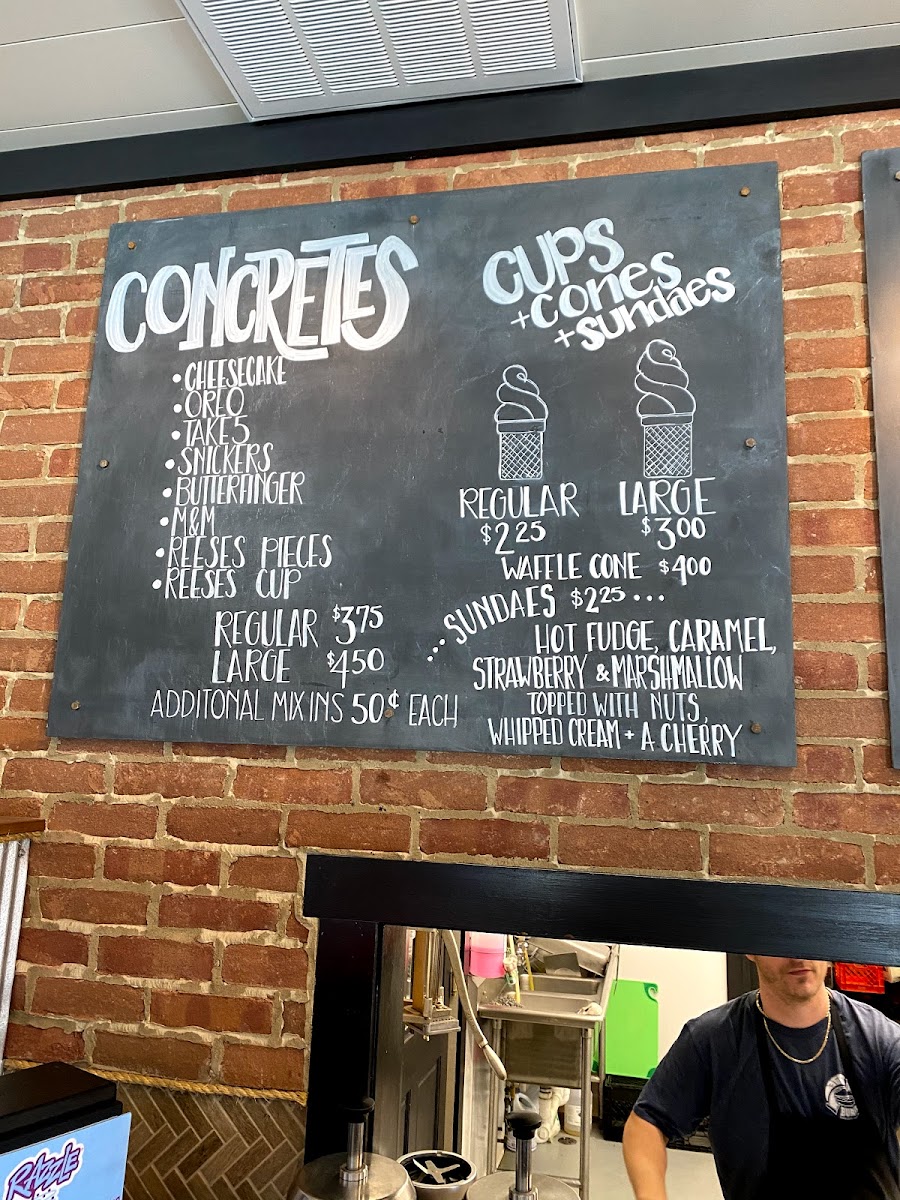 CONCRETES
• CHEESECAKE
• OREO
• TAKE 5
• SNICKERS
• BUTTERFINGER
• M&M
• REESES PIECES
• REESES CUP
REGULAR $3.75
LARGE $4.50
ADDITONAL MIX INS 50¢ EACH
CUPS
+ CONES
+ SUNDAES
REGULAR
$2.25
LARGE
$3.00
WAFFLE CONE $4.00
...SUNDAES $2.25...
HOT FUDGE, CARAMEL,
STRAWBERRY & MARSHMALLOW
TOPPED WITH NUTS,
WHIPPED CREAM + A CHERRY
RAZZLE